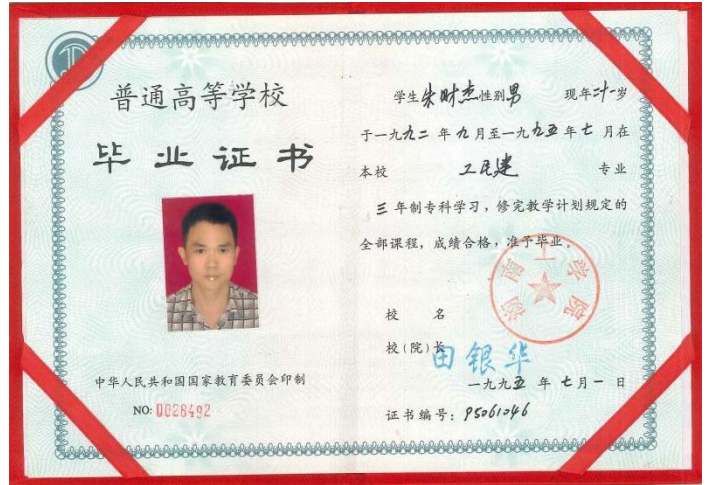 普通高等学校
毕业证书
中华人民共和国国家教育委员会印制
NO: 0028492
学生朱财杰性别男 现年二十一岁
于一九九二年九月至一九九五年七月在
本校 工民建 专业
三年制专科学习，修完教学计划规定的
全部课程，成绩合格，准予毕业。
湖南工学院
校 名
校(院)长
田银华
一九九五年七月一日
证书编号：95061046